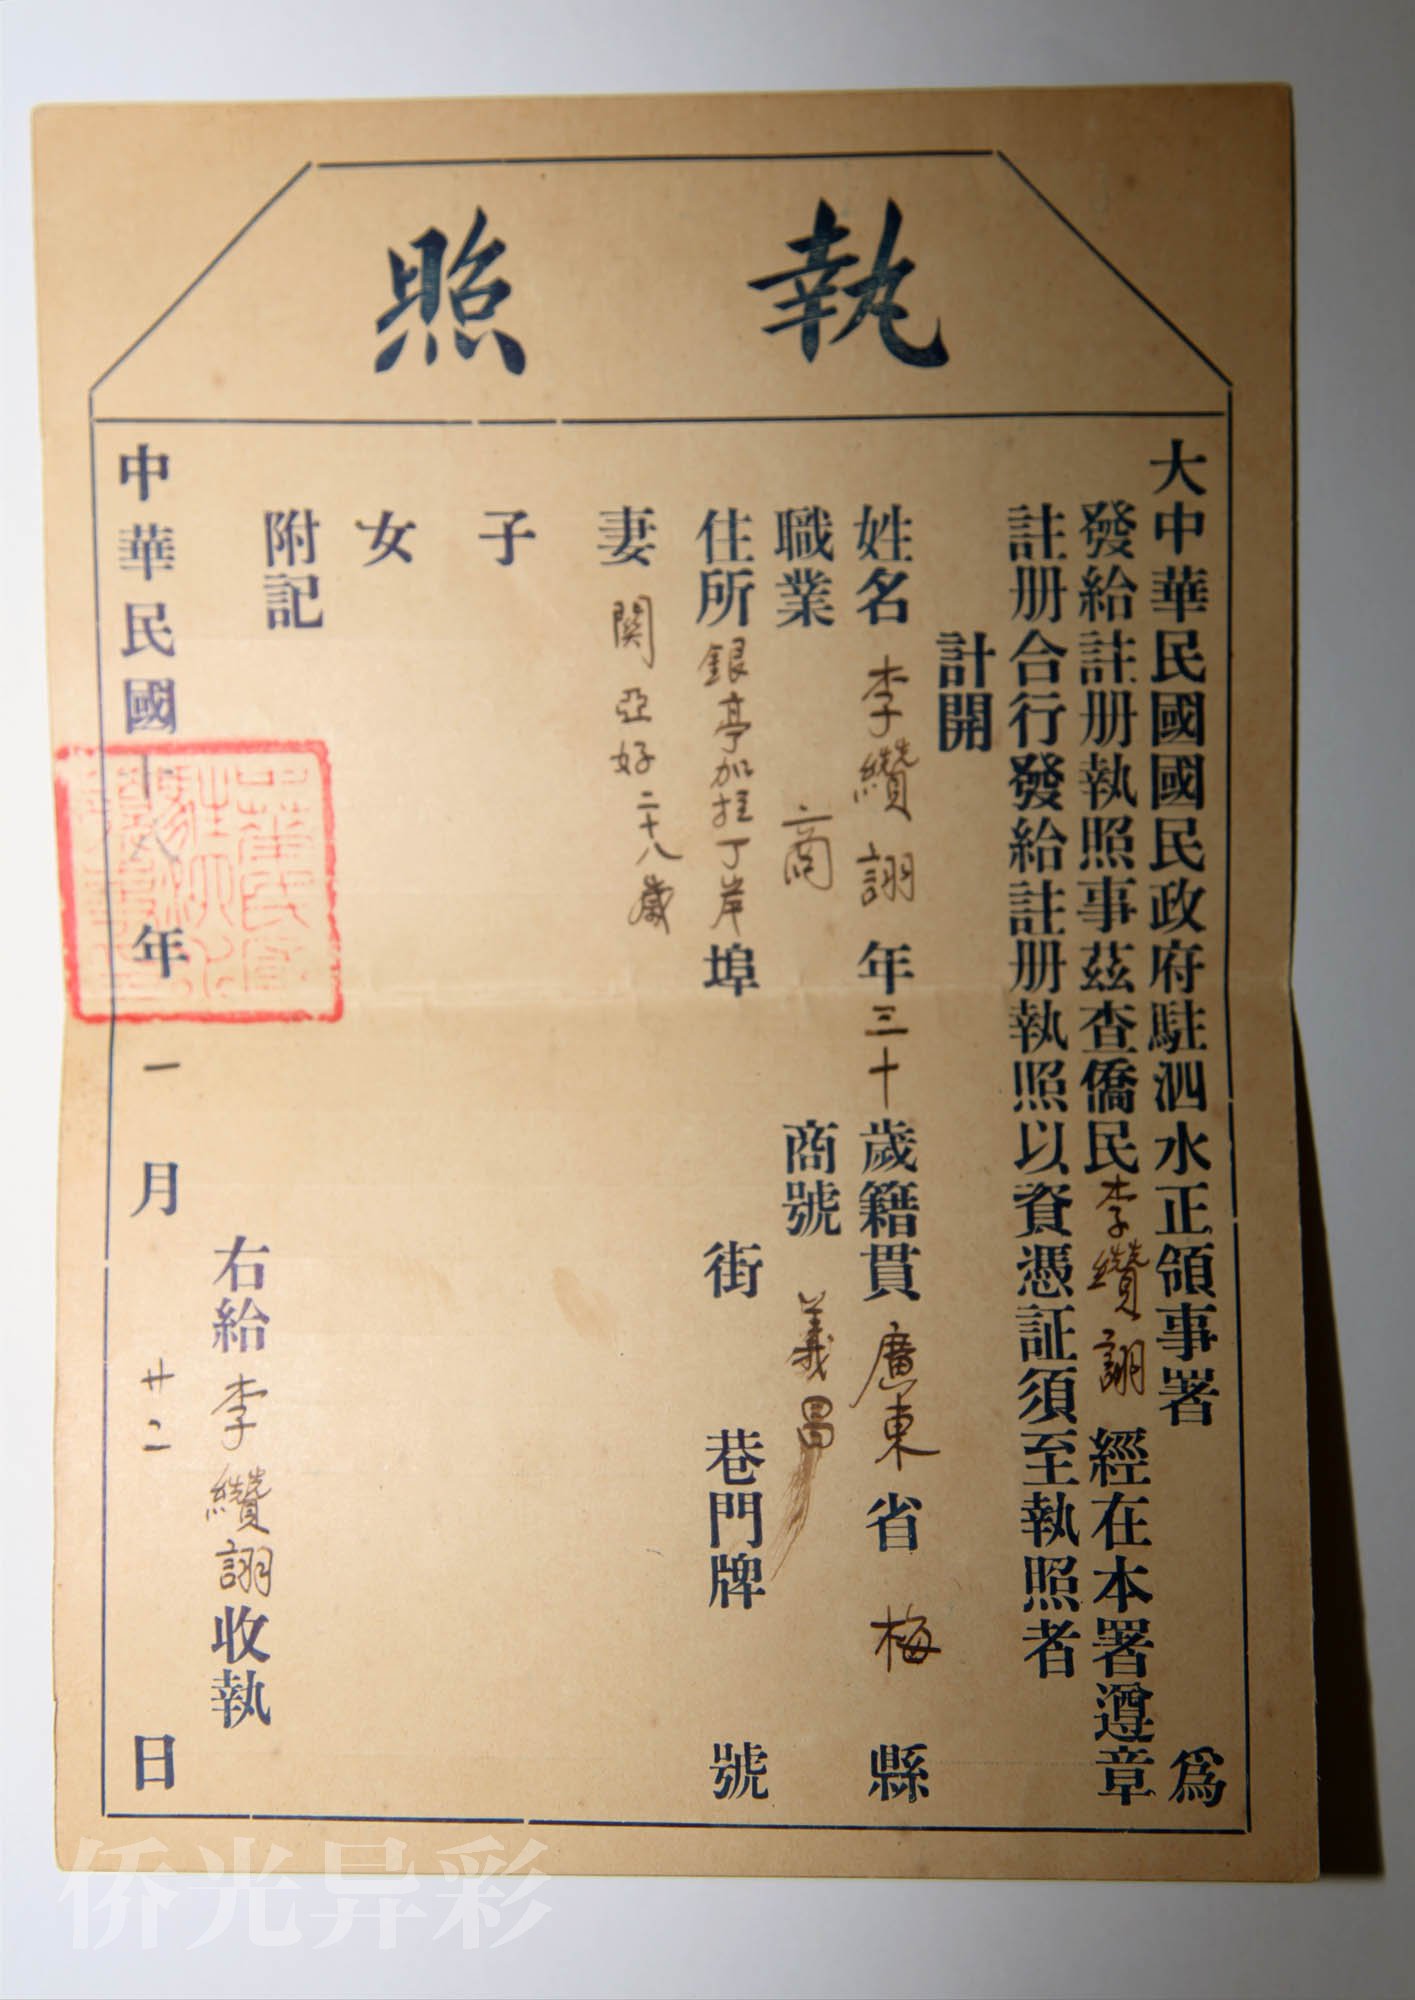 執照
大中華民國國民政府駐泗水正領事署 爲
發給註册執照事茲查僑民李纘詡經在本署遵章
註册合行發給註册執照以資憑証須至執照者
計開
姓名 李纘詡 年三十歲籍貫廣東省梅縣
職業 商 商號 義昌
住所銀亭加挂丁岸埠 街 巷門牌 號
妻 関亞好二十八歲
子
女
附記
右給李纘詡收執
中華民國十八年一月廿二日
侨光异彩